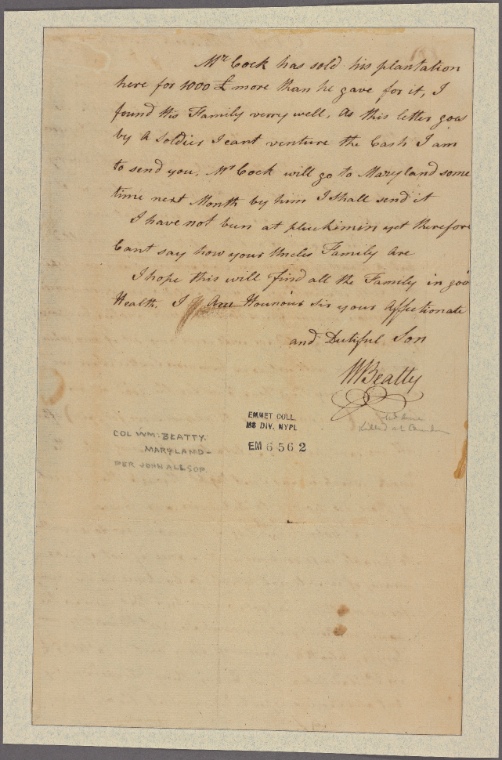 Mr Cock has sold his plantation
here for 1000 £ more than he gave for it, I
found this Family verry well, as this letter goes
by a Soldier I cant venture the Cash I am
to send you. Mr Cock will go to Maryland some
time next Month by him I shall send it
I have not bun at pluckimin yet therefore
Cant say how your Uncles Family are
I hope this will find all the Family in goo
Health. I am Hounour Sir your Affectionate
and Dutiful Son
WBeatty
Killed at
EMMET COLL.
MS DIV. NYPL
EM 6562
COL WM. BEATTY.
MARYLAND-
PER JOHN ALLSOP